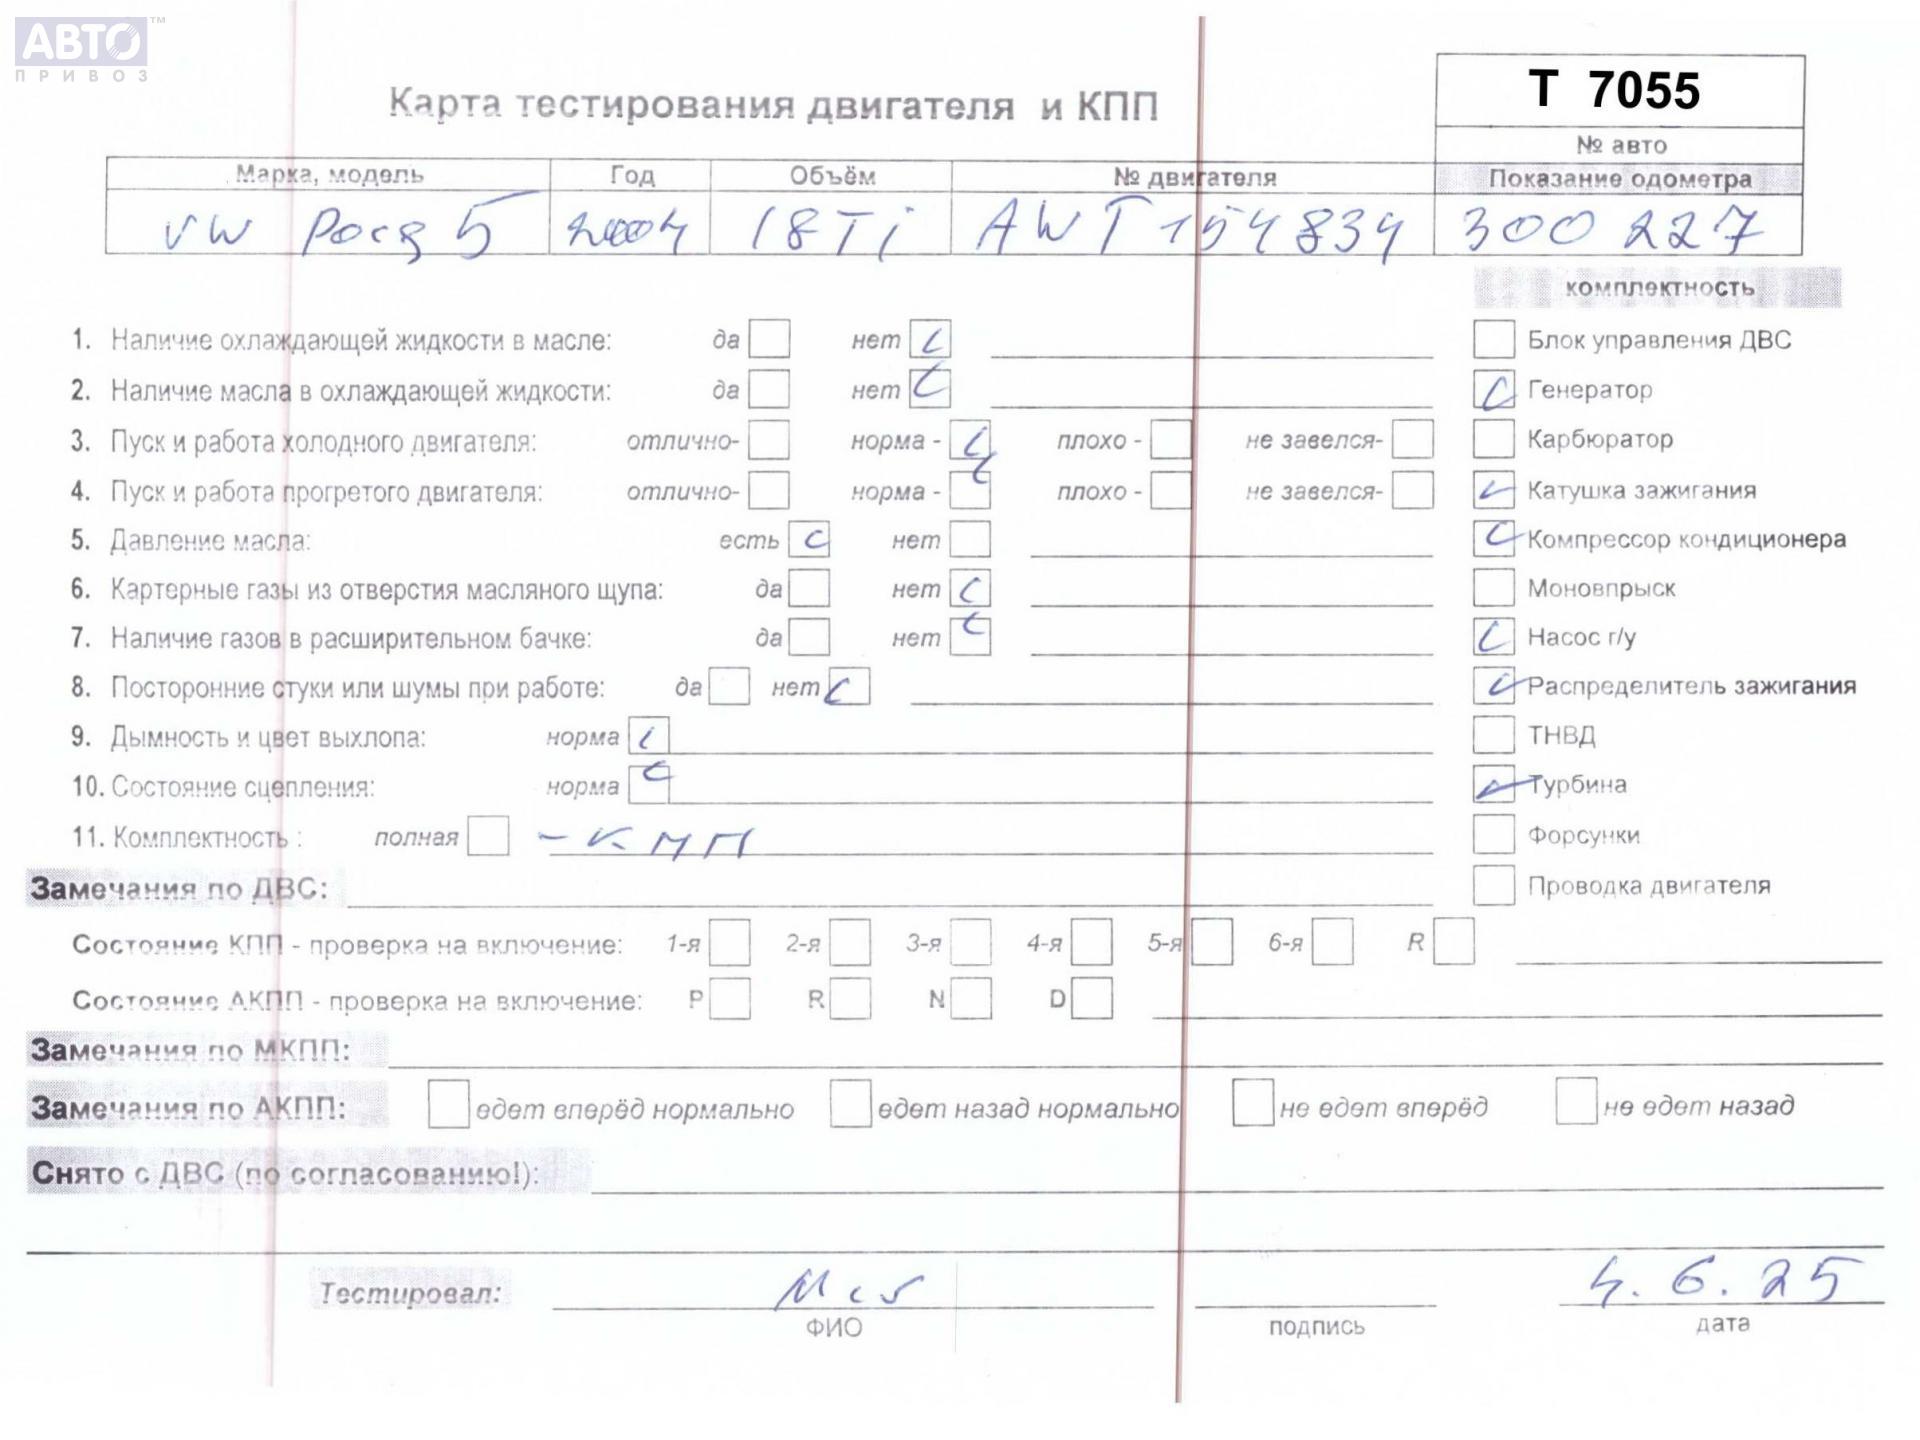 АВТО™
ПРИВОЗ
Т 7055
Карта тестирования двигателя и КПП
№ авто
Марка, модель Год Объём № двигателя Показание одометра
VW 5 2004 18Ti AWT154834 300227
комплектность
1. Наличие охлаждающей жидкости в масле: да нет Блок управления ДВС
2. Наличие масла в охлаждающей жидкости: да нет Генератор
3. Пуск и работа холодного двигателя: отлично- норма - плохо - не завелся- Карбюратор
4. Пуск и работа прогретого двигателя: отлично- норма - плохо - не завелся- Катушка зажигания
5. Давление масла: есть нет Компрессор кондиционера
6. Картерные газы из отверстия масляного щупа: да нет Моновпрыск
7. Наличие газов в расширительном бачке: да нет Насос г/у
8. Посторонние стуки или шумы при работе: да нет Распределитель зажигания
9. Дымность и цвет выхлопа: норма ТНВД
10. Состояние сцепления: норма Турбина
11. Комплектность : полная - КМП Форсунки
Замечания по ДВС: Проводка двигателя
Состояние КПП - проверка на включение: 1-я 2-я 3-я 4-я 5-я 6-я R
Состояние АКПП - проверка на включение: P R N D
Замечания по МКПП:
Замечания по АКПП: едет вперёд нормально едет назад нормально не едет вперёд не едет назад
Снято с ДВС (по согласованию!):
Тестировал: 4.6.25
ФИО подпись дата